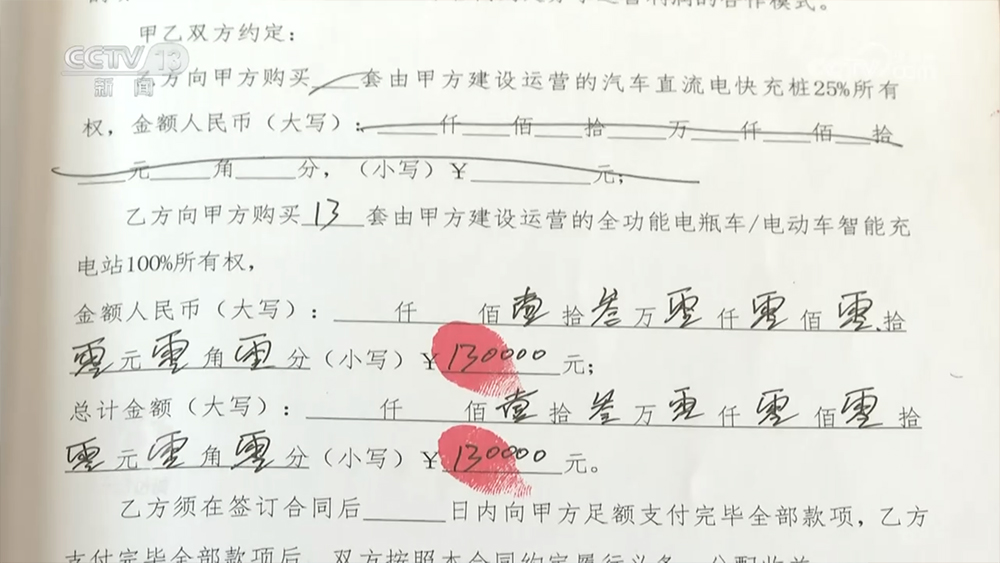 CCTV 13
新闻
甲乙双方约定：
乙方向甲方购买____套由甲方建设运营的汽车直流电快充桩25%所有
权，金额人民币（大写）：____仟____佰____拾____万____仟____佰____拾
____元____角____分，（小写）¥________元；
乙方向甲方购买13套由甲方建设运营的全功能电瓶车/电动车智能充
电站100%所有权，
金额人民币（大写）：____仟____佰壹拾叁万零仟零佰零拾
零元零角零分（小写）¥130000元；
总计金额（大写）：____仟____佰壹拾叁万零仟零佰零拾
零元零角零分（小写）¥130000元。
乙方须在签订合同后____日内向甲方足额支付完毕全部款项，乙方
支付完毕全部款项后，双方按照本合同约定履行义务，分配收益